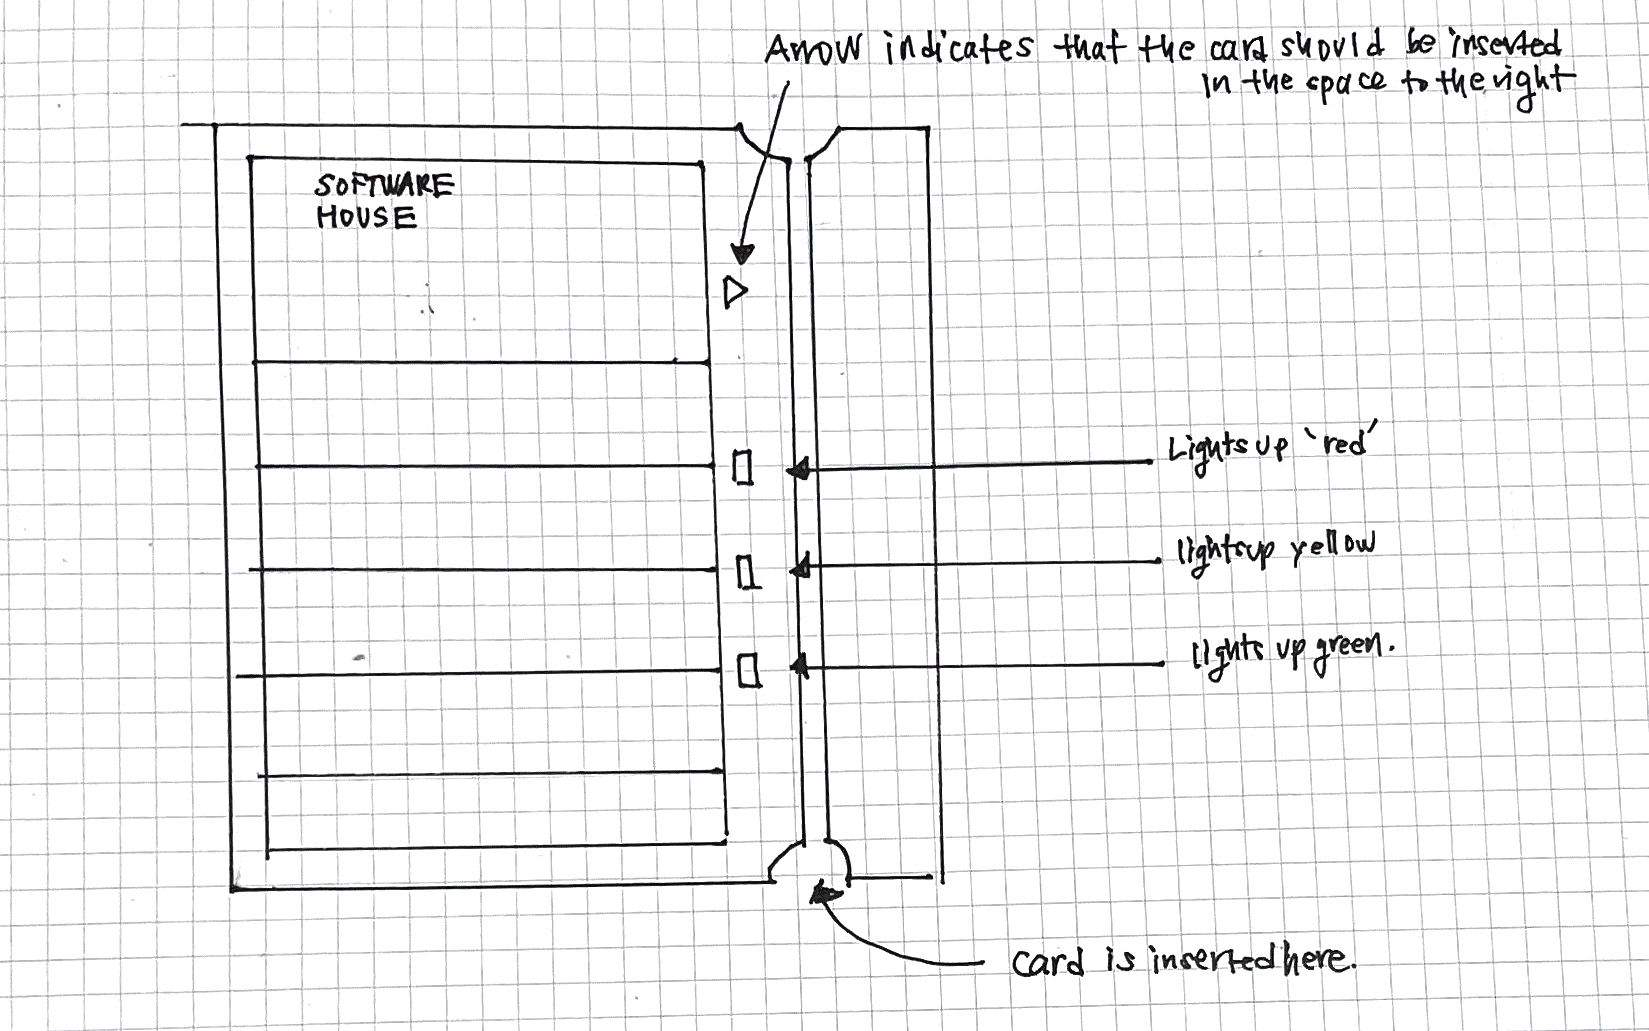 Arrow indicates that the card should be inserted
in the space to the right
SOFTWARE
HOUSE
Lights up 'red'
lights up yellow
lights up green.
card is inserted here.